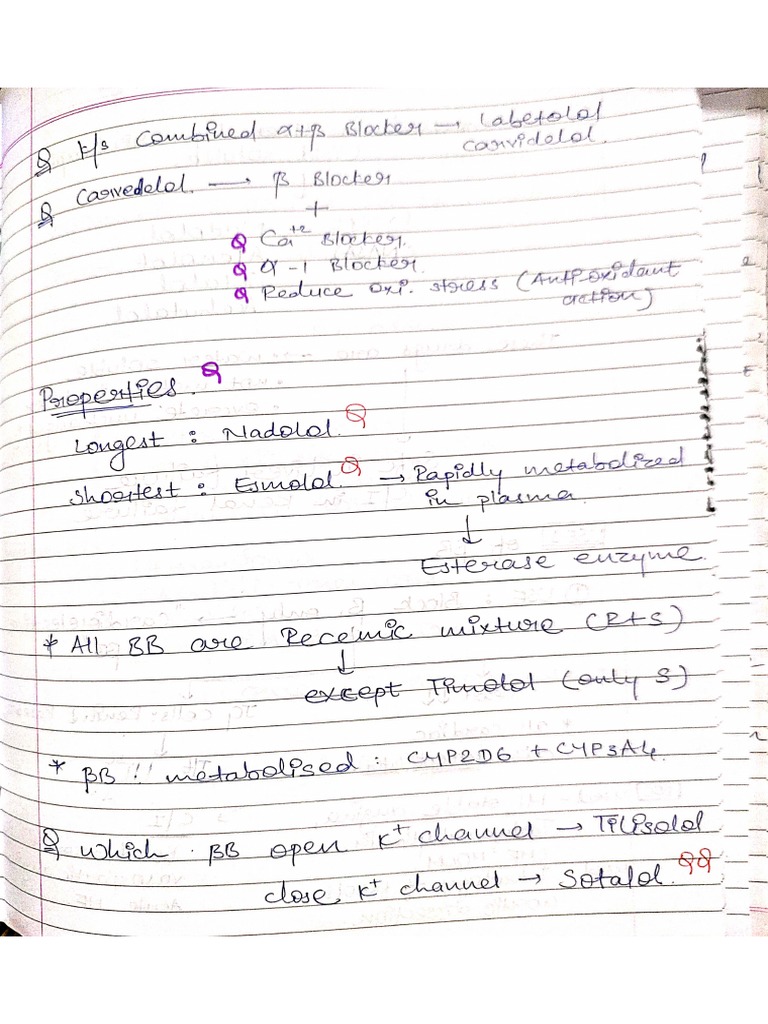 Q F/s Combined α+β Blocker → Labetolol
carvidelol.
Q Carvedelol. → β Blocker
+
Q Ca+2 Blocker.
Q α-1 Blocker.
Q Reduce oxi. stress (Anti-oxidant
action)
Properties. Q
Longest : Nadolol. Q
Shortest : Esmolol. Q → Rapidly metabolized
in plasma.
↓
Esterase enzyme.
* All BB are Recemic mixture (R+S)
↓
except Timolol (only S)
* βB !! metabolised : CYP2D6 + CYP3A4.
Q which βB open K+ channel → Tilisolol
close K+ channel → Sotalol. QQ